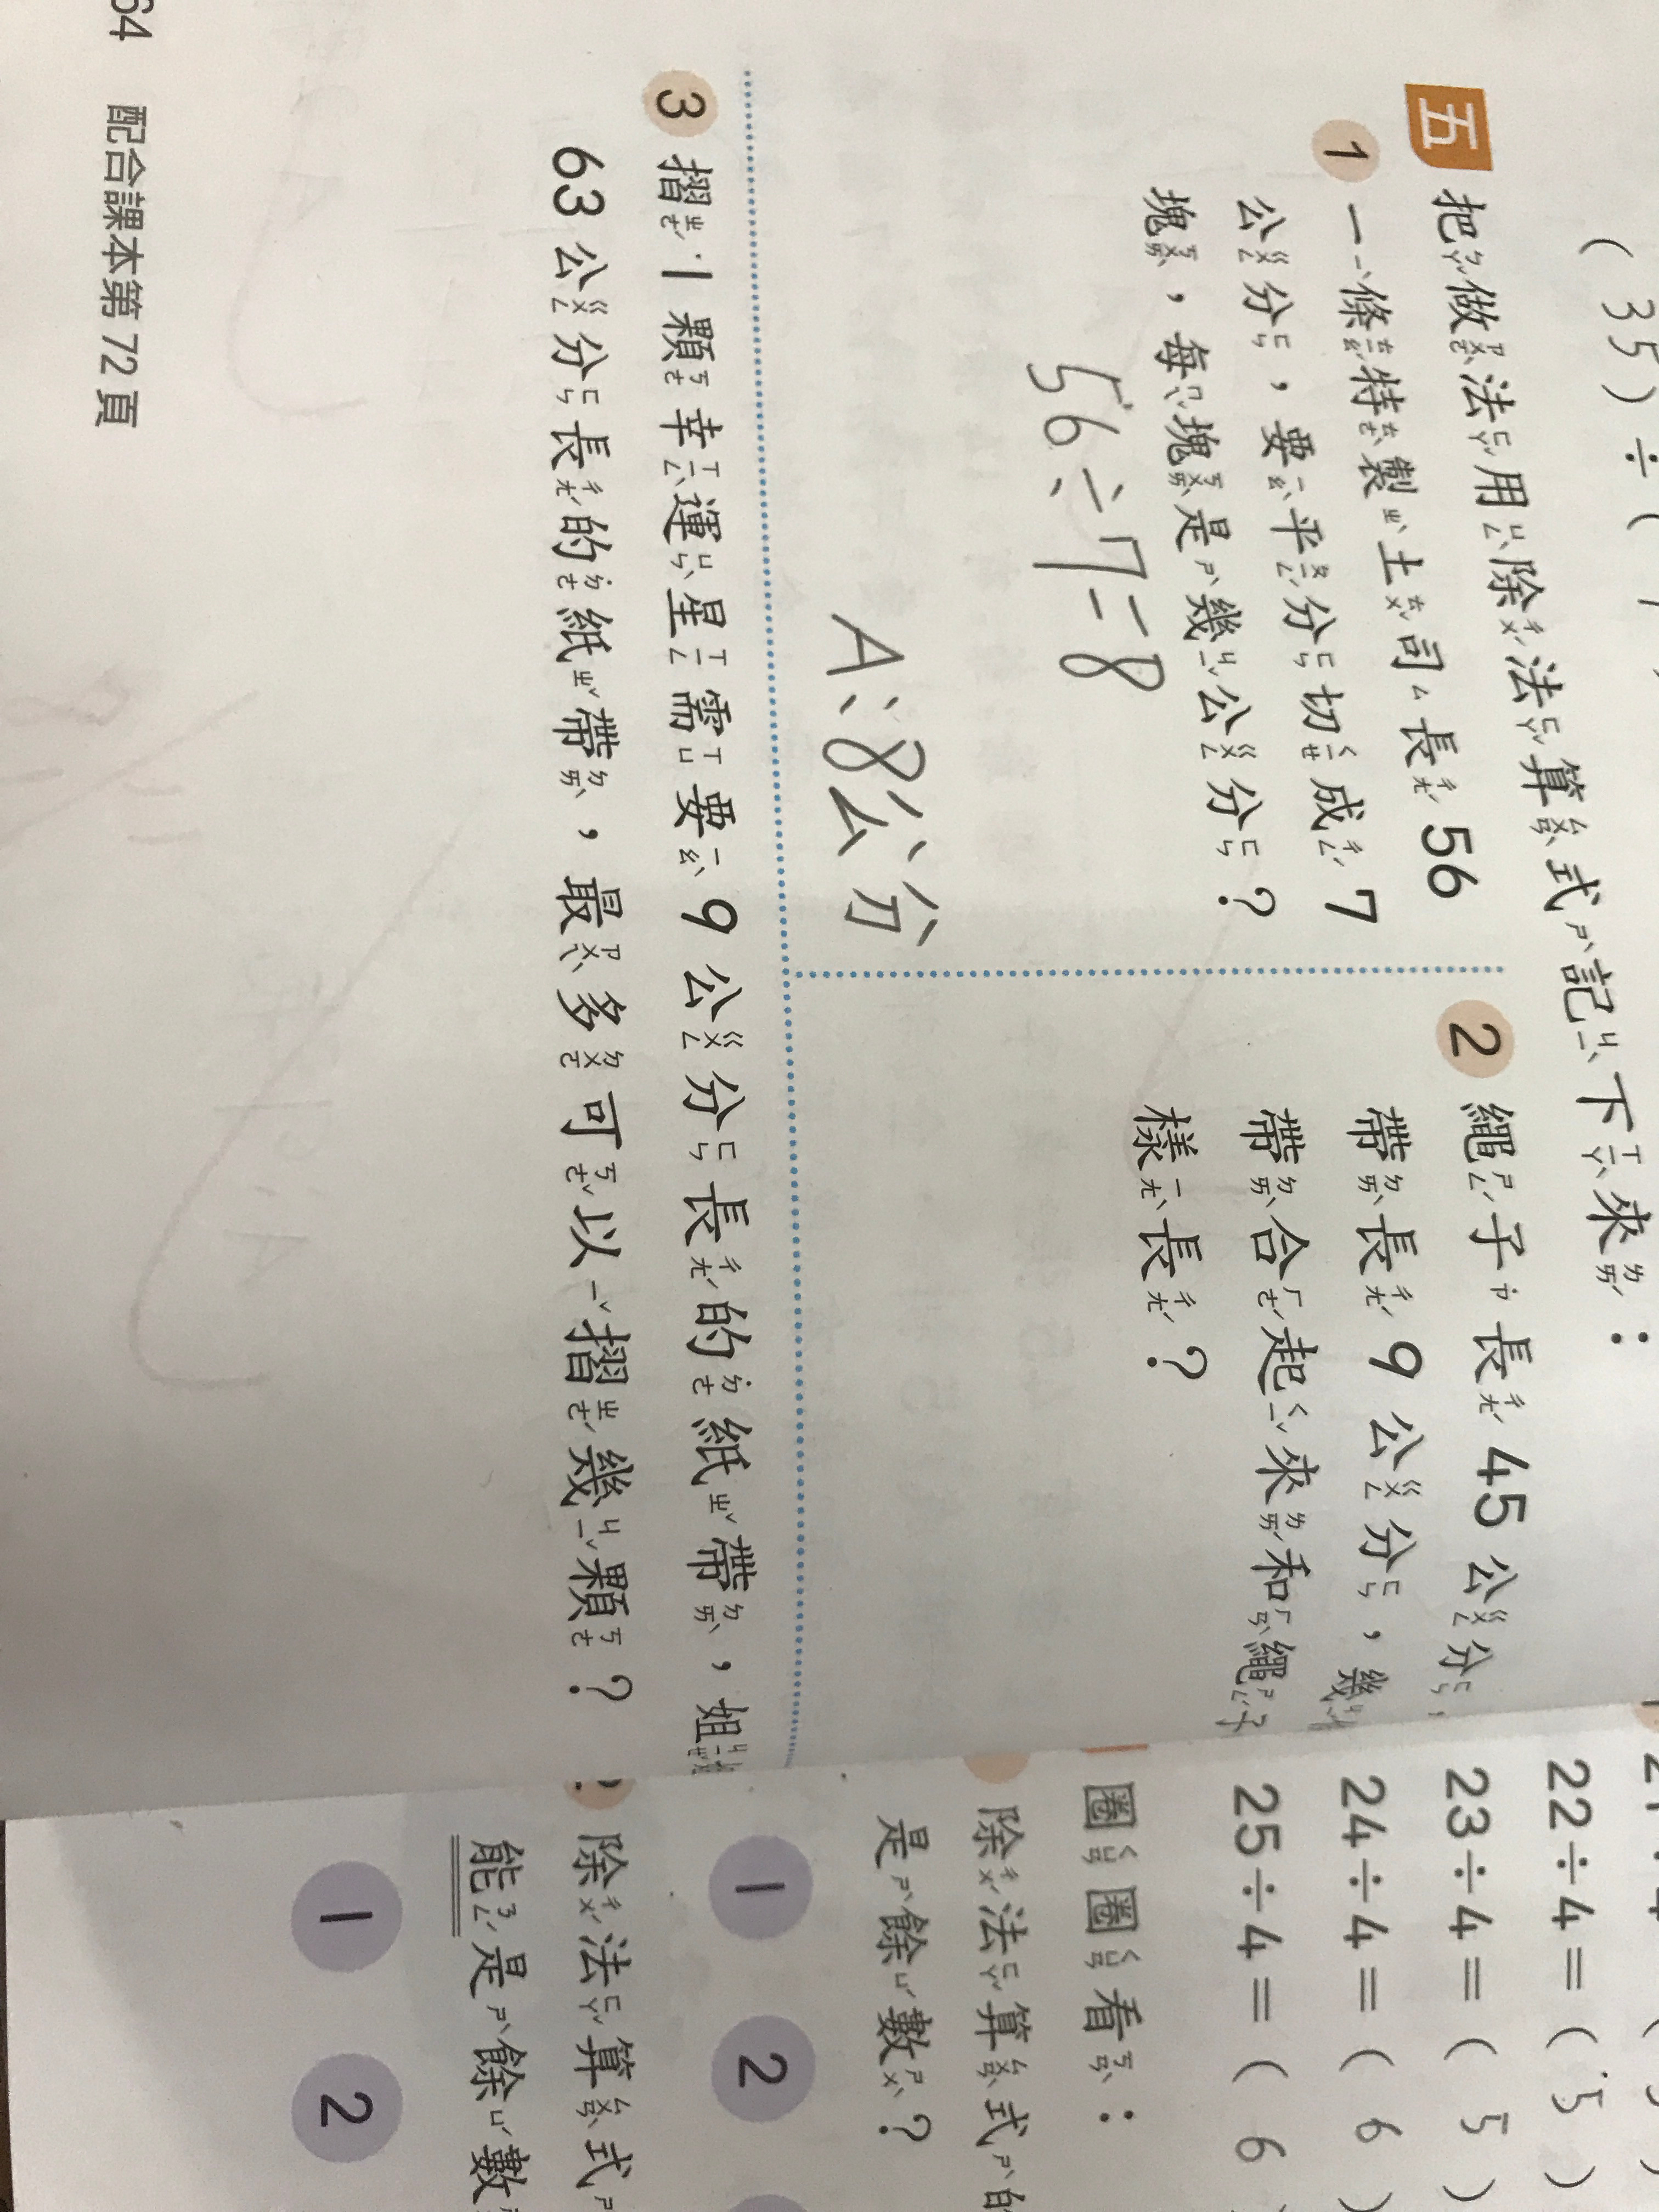 (35)÷(
五 把做法用除法算式記下來：
1 一條特製土司長 56
公分，要平分切成 7
塊，每塊是幾公分？
56÷7=8
A：8公分
2 繩子長 45 公分，
帶長 9 公分，幾
帶合起來和繩子
樣長？
3 摺 1 顆幸運星需要 9 公分長的紙帶，姐
63 公分長的紙帶，最多可以摺幾顆？
64 配合課本第 72 頁
22÷4=(5)
23÷4=(5)
24÷4=(6)
25÷4=(6
圈圈看：
除法算式的
是餘數？
1 2
除法算式
能是餘數
1 2